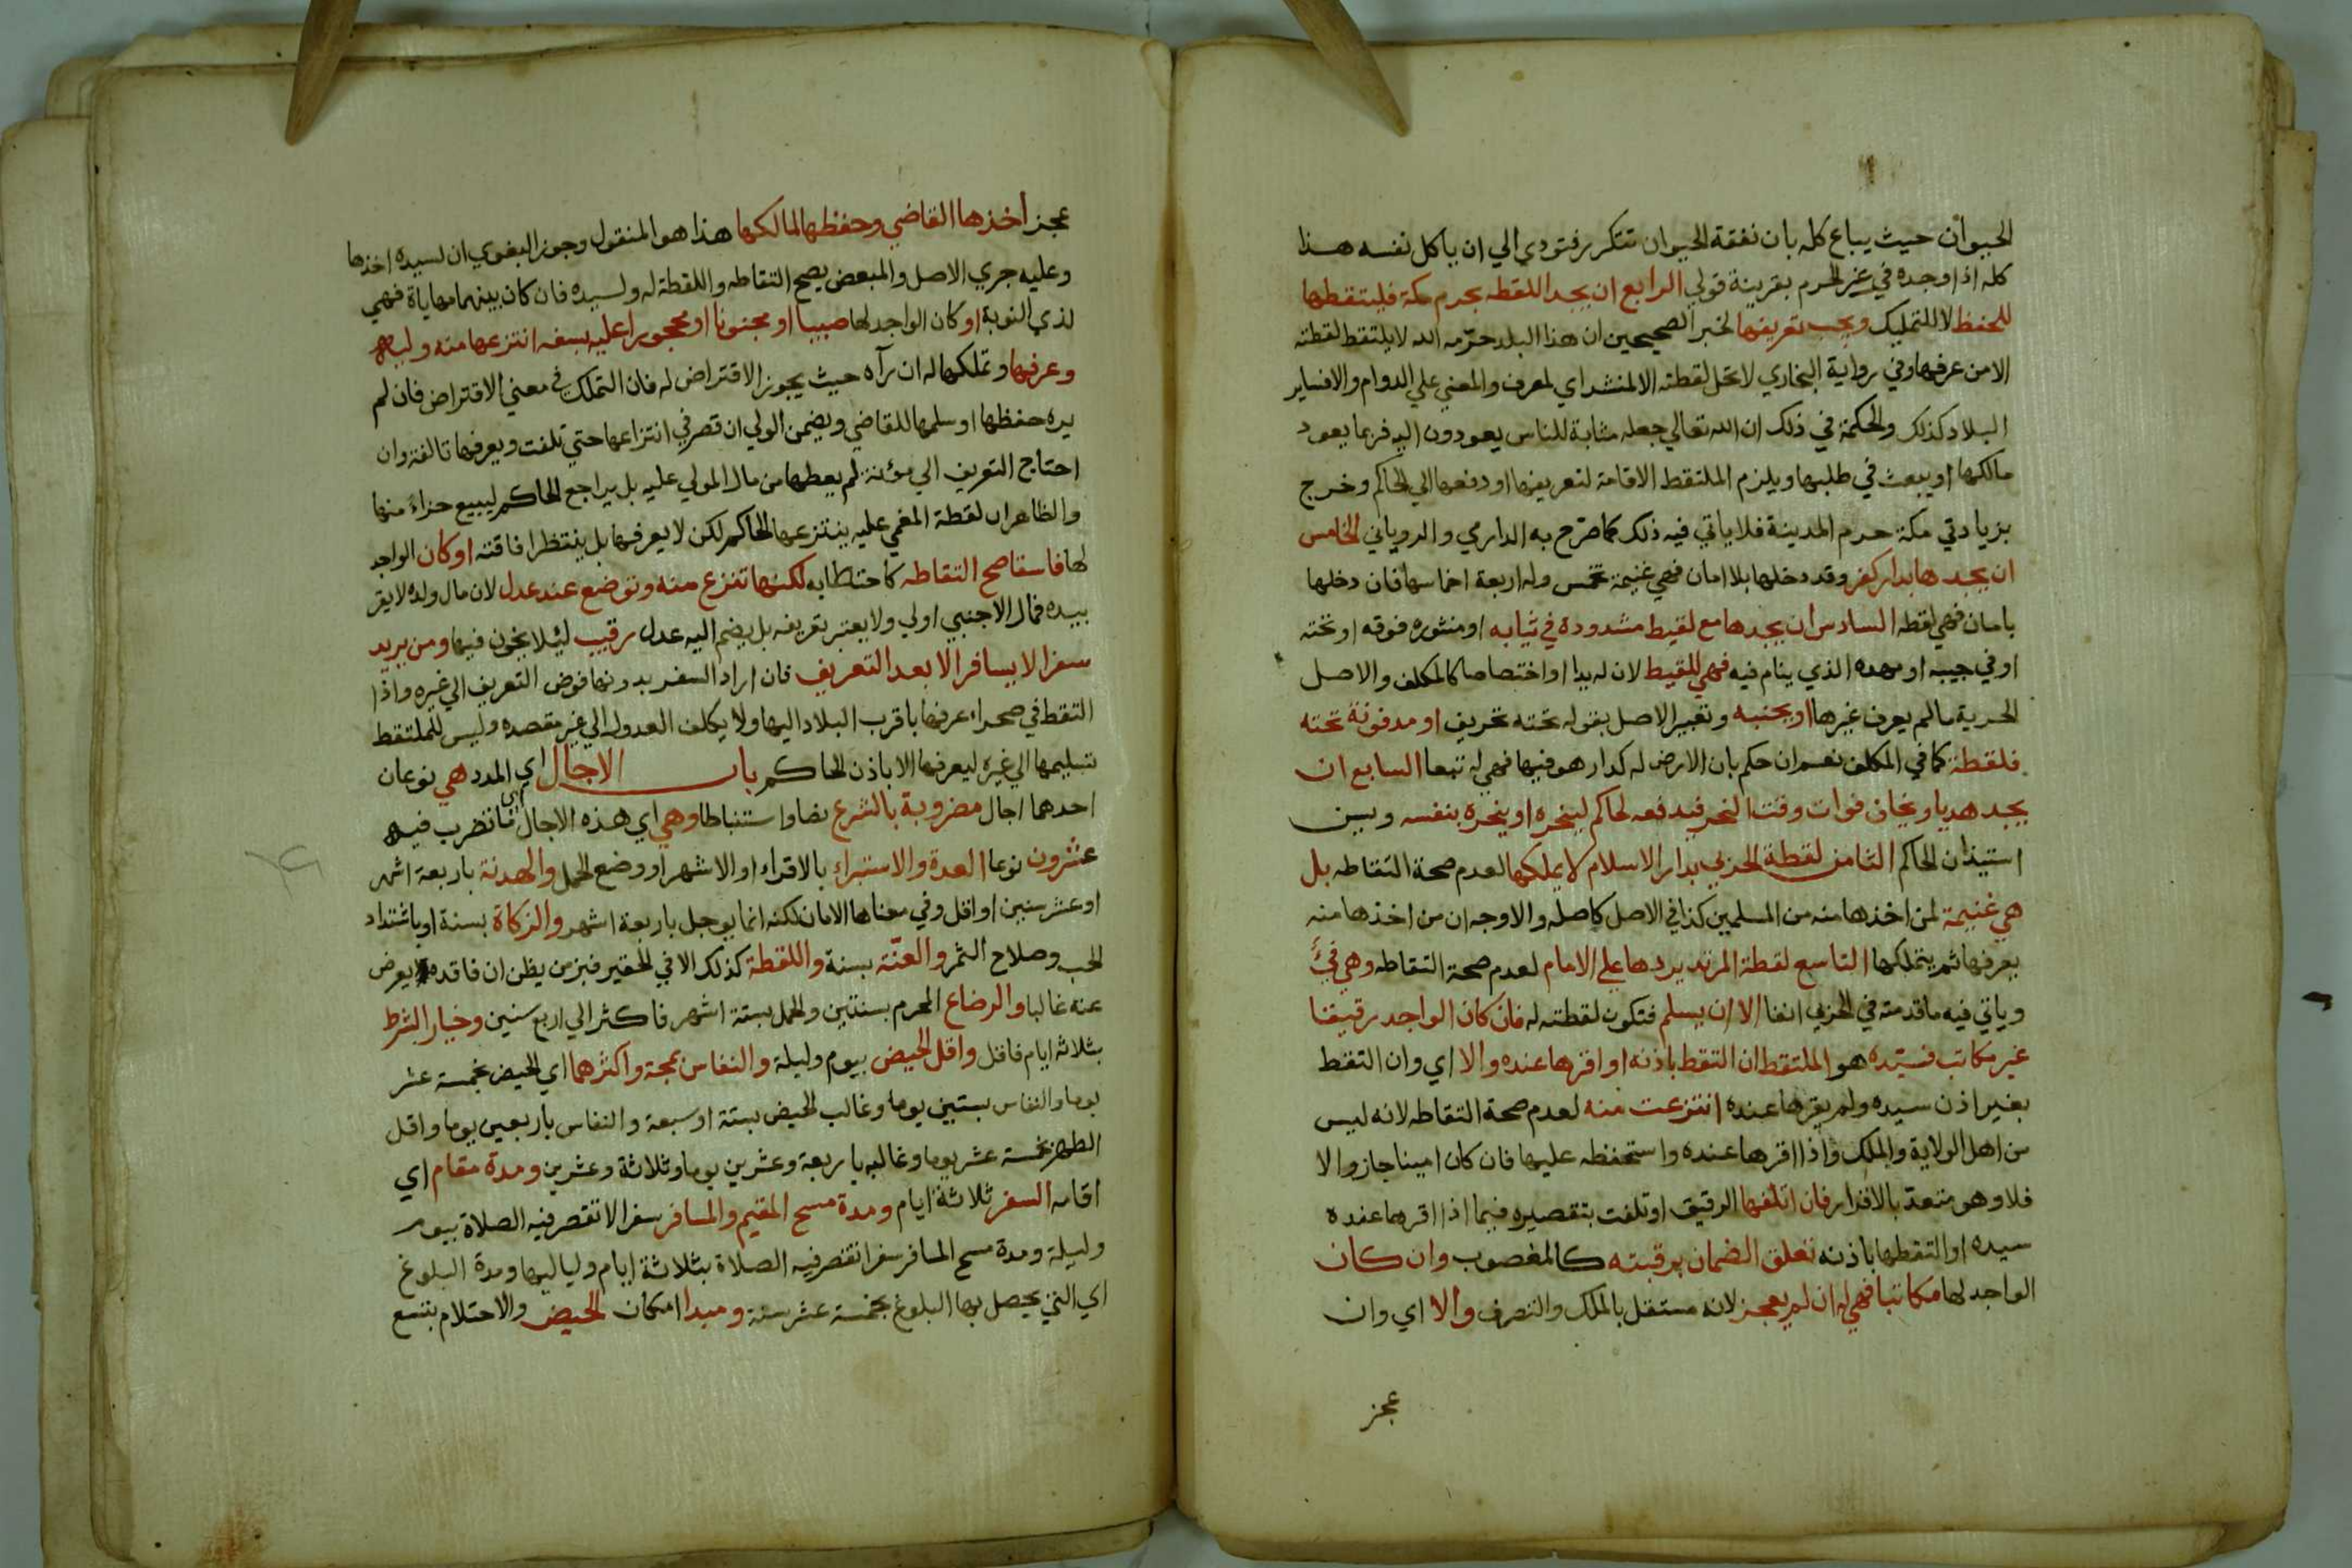 الحيوان حيث يباع كله بان نفقة الحيوان تتكرر فتودي الي ان ياكل نفسه هذا
كله اذا وجده في غير الحرم بقرينة قولي الرابع ان يجد اللقطه بحرم مكة فليتقطها
للحفظ لا للتمليك ويجب تعريفها لخبر الصحيحين ان هذا البلد حرّمه الله لا يلتقط لقطته
الا من عرفها وفي رواية البخاري لا تحل لقطته الا لمنشد اي لمعرف والمعني علي الدوام والا فساير
البلاد كذلك والحكمة في ذلك ان الله تعالي جعله مثابة للناس يعودون اليه فربما يعود
مالكها او يبعث في طلبها ويلزم الملتقط الاقامة لتعريفها او دفعها الي الحاكم وخرج
بزيادتي مكة حرم المدينة فلا ياتي فيه ذلك كما صرّح به الدارمي والروياني الخامس
ان يجدها بدار كفر وقد دخلها بلا امان فهي غنيمة تخمس وله اربعة اخماسها فان دخلها
بامان فهي لقطه السادس ان يجدها مع لقيط مشدودة في ثيابه او منثوره فوقه او تحته
او في جيبه او مهده الذي ينام فيه فهي للقيط لان له يدا او اختصاصا كالمكلف والاصل
الحرية مالم يعرف غيرها او بجنبه وتعبير الاصل بقوله تحته تحريف او مدفونة تحته
فلقطة كما في المكلف نعم ان حكم بان الارض له كدار هو فيها فهي له تبعا السابع ان
يجد هديا ويخاف فوات وقت النحر فيدفعه لحاكم لينحره او ينحره بنفسه ويسن
استيذان الحاكم الثامن لقطة الحربي بدار الاسلام لا يملكها لعدم صحة التقاطه بل
هي غنيمة لمن اخذها منه من المسلمين كذا في الاصل كاصله والاوجه ان من اخذها منه
يعرفها ثم يتملكها التاسع لقطة المرتد يردها علي الامام لعدم صحة التقاطه وهي فئ
وياتي فيه ما قدمته في الحربي انفا الا ان يسلم فتكون لقطته له فان كان الواجد رقيقا
غير مكاتب فسيّده هو الملتقط ان التقط باذنه او اقرها عنده والا اي وان التقط
بغير اذن سيده ولم يقرها عنده انتزعت منه لعدم صحة التقاطه لانه ليس
من اهل الولاية والملك واذا اقرها عنده واستحفظه عليها فان كان امينا جاز والا
فلا وهو متعدّ بالاقرار فان اتلفها الرقيق او تلفت بتقصيره فيما اذا اقرها عنده
سيده او التقطها باذنه تعلق الضمان برقبته كالمغصوب وان كان
الواجد لها مكاتبا فهي له ان لم يعجز لانه مستقل بالملك والتصرف والا اي وان
عجز
عجز اخذها القاضي وحفظها لمالكها هذا هو المنقول وجوز البغوي ان لسيده اخذها
وعليه جري الاصل والمبعض يصح التقاطه واللقطة له ولسيده فان كان بينهما مهاياة فهي
لذي النوبة او كان الواجد لها صبيا او مجنونا او محجورا عليه بسفه انتزعها منه وليه
وعرفها وتملكها له ان رآه حيث يجوز الاقتراض له فان التملك في معني الاقتراض فان لم
يره حفظها او سلمها للقاضي ويضمن الولي ان قصر في انتزاعها حتي تلفت ويعرفها تالفة وان
احتاج التعريف الي مؤنة لم يعطها من مال المولي عليه بل يراجع الحاكم ليبيع جزاء منها
والظاهر ان لقطة المغمي عليه ينتزعها الحاكم لكن لا يعرفها بل ينتظر افاقته او كان الواجد
لها فاسقا صح التقاطه كاحتطابه لكنها تنزع منه وتوضع عند عدل لان مال ولده لا يقر
بيده فمال الاجنبي اولي ولا يعتبر تعريفه بل يضم اليه عدل رقيب ليلا يخون فيها ومن يريد
سفرا لا يسافر الا بعد التعريف فان اراد السفر بدونها فوض التعريف الي غيره واذا
التقط في صحراء عرفها باقرب البلاد اليها ولا يكلف العدول الي غير مقصده وليس للملتقط
تسليمها الي غيره ليعرفها الا باذن الحاكم باب الاجال اي المدد هي نوعان
احدهما اجال مضروبة بالشرع نصا او استنباطا وهي اي هذه الاجال ما تضرب فيه
عشرون نوعا العدة والاستبراء بالاقراء او الاشهر او وضع الحمل والهدنة باربعة اشهر
او عشر سنين او اقل وفي معناها الامان لكنه انما يوجل باربعة اشهر والزكاة بسنة او باشتداد
الحب وصلاح الثمر والعنّة بسنة واللقطة كذلك الا في الحقير فبزمن يظن ان فاقده يعرض
عنه غالبا والرضاع المحرم بسنتين والحمل بستة اشهر فاكثر الي اربع سنين وخيار الشرط
بثلاثة ايام فاقل واقل الحيض بيوم وليلة والنفاس بمجة واكثرهما اي الحيض بخمسة عشر
يوما والنفاس بستين يوما وغالب الحيض بستة او سبعة والنفاس باربعين يوما واقل
الطهر بخمسة عشر يوما وغالبه باربعة وعشرين يوما وثلاثة وعشرين ومدة مقام اي
اقامه السفر ثلاثة ايام ومدة مسح المقيم والمسافر سفرا لا تقصر فيه الصلاة بيوم
وليلة ومدة مسح المسافر سفرا تقصر فيه الصلاة بثلاثة ايام ولياليها ومدة البلوغ
اي التي يحصل بها البلوغ بخمسة عشر سنة ومبدا امكان الحيض والاحتلام بتسع